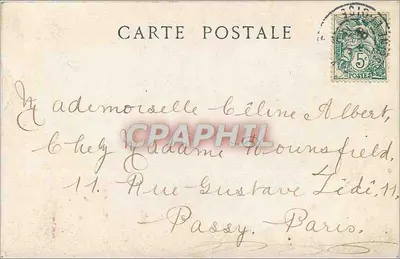 CARTE POSTALE
5c
POSTES
Mademoiselle Céline Albert,
CPAPHIL
Chez Madame Mounsfield,
11. Rue Gustave Zédé, 11,
Passy. Paris.